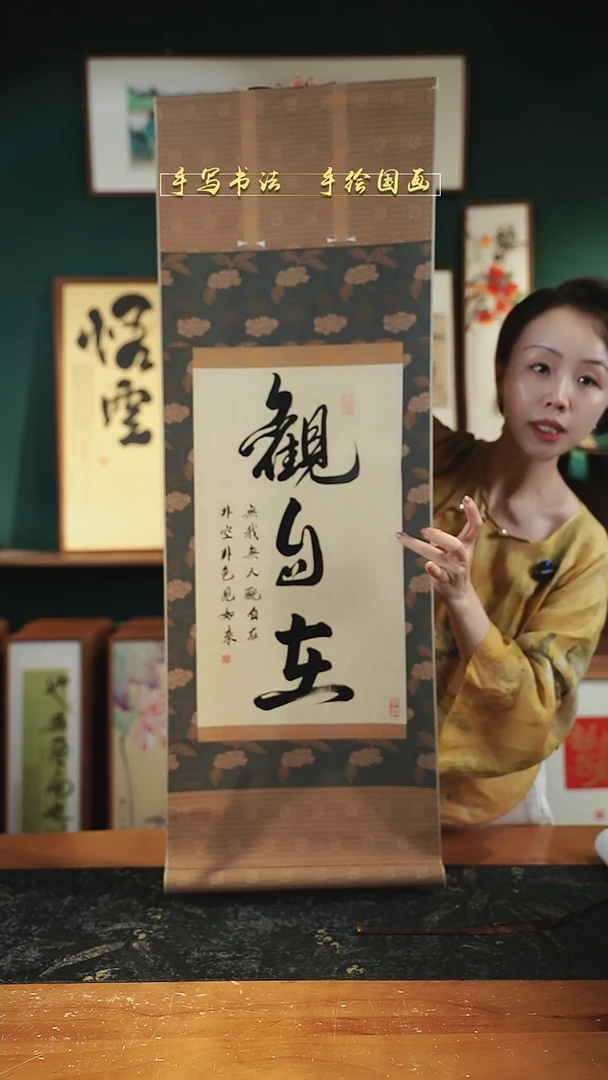 手写书法 手绘国画
觀自在
無我無人觀自在
非空非色見如来
悟空